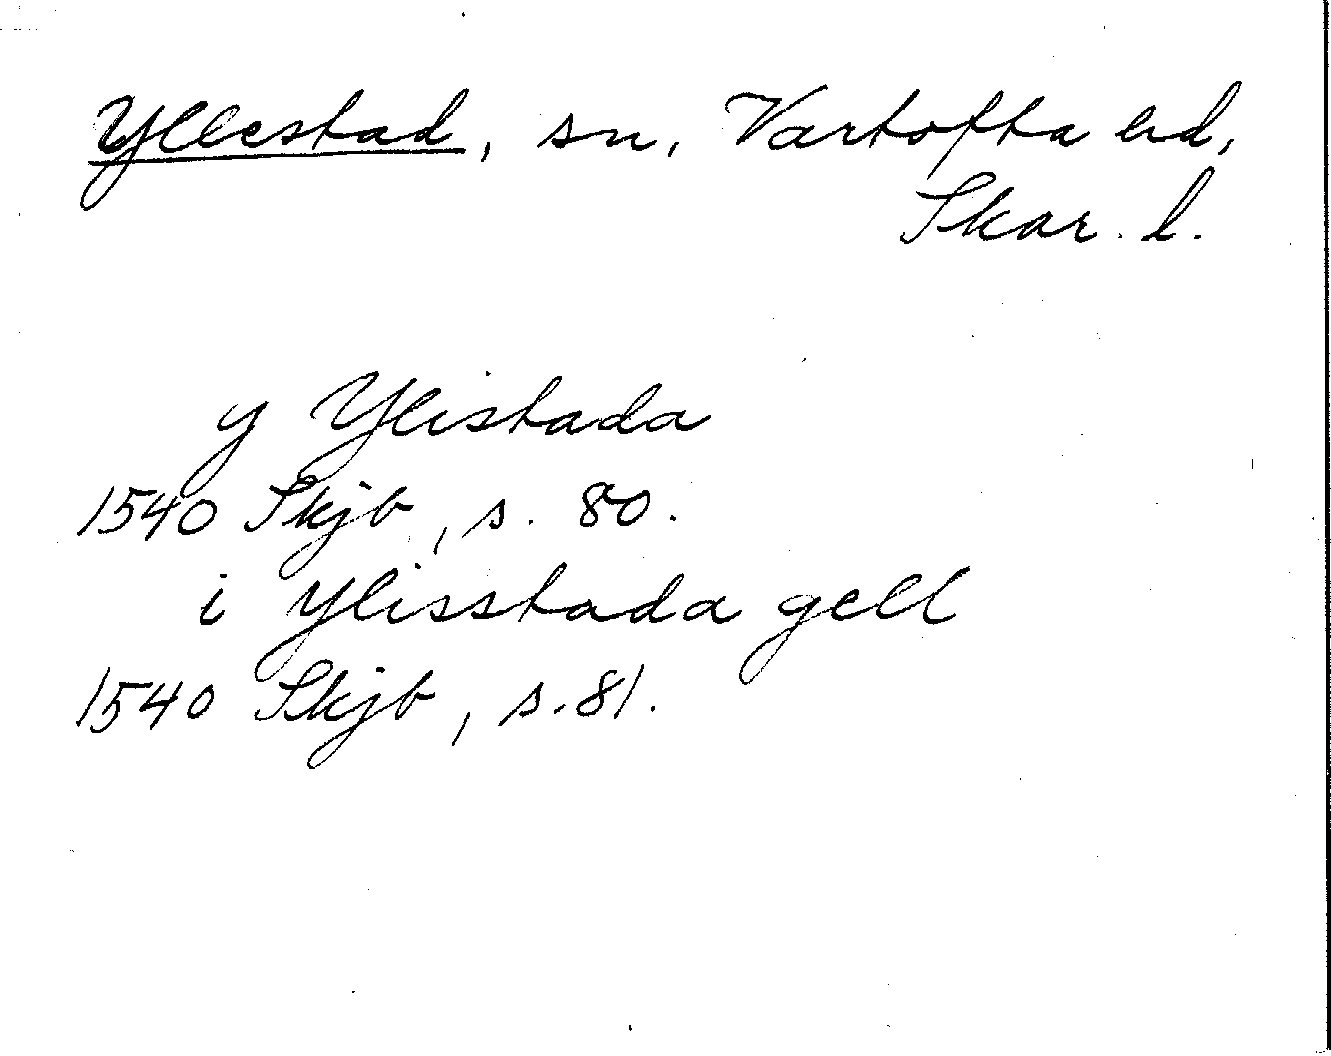 Yllestad, sn, Vartofta hd,
Skar. l.
y Ylistada
1540 Skjb, s. 80.
i ylisstada gell
1540 Skjb, s. 81.